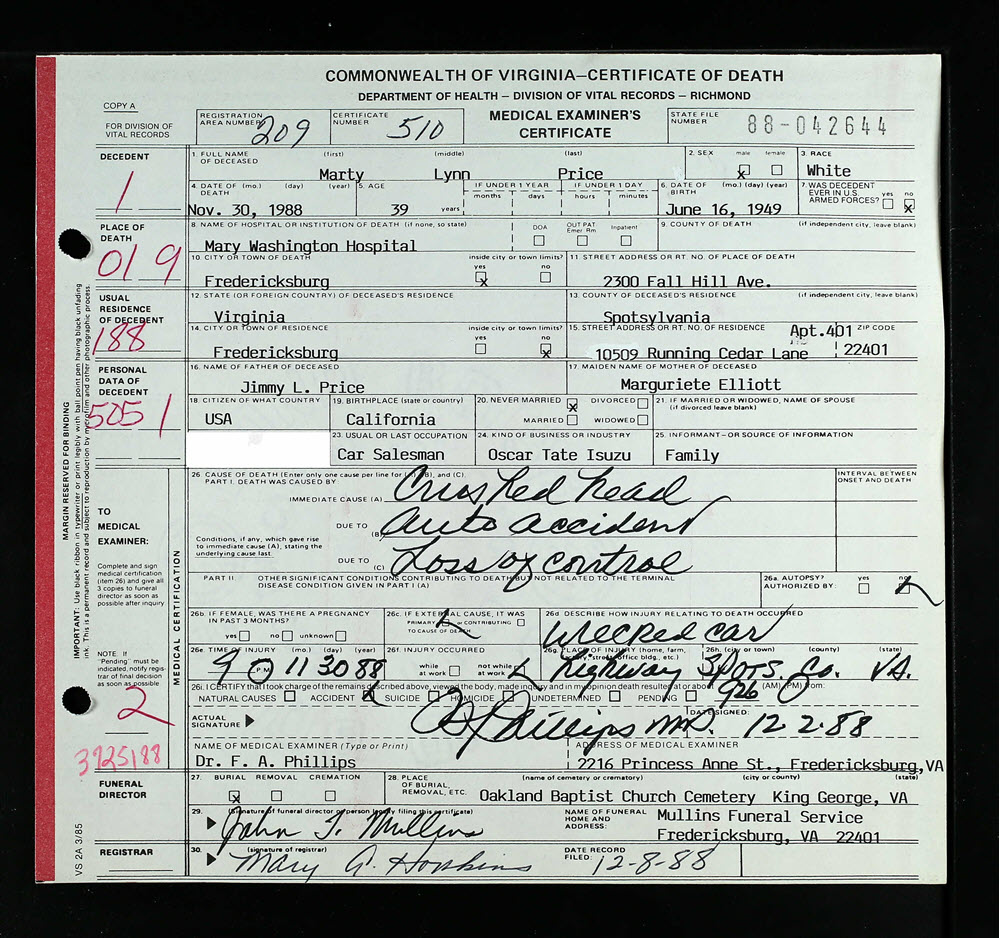 COMMONWEALTH OF VIRGINIA—CERTIFICATE OF DEATH
DEPARTMENT OF HEALTH — DIVISION OF VITAL RECORDS — RICHMOND
COPY A
FOR DIVISION OF VITAL RECORDS
REGISTRATION AREA NUMBER 209
CERTIFICATE NUMBER 510
MEDICAL EXAMINER'S CERTIFICATE
STATE FILE NUMBER 88-042644
DECEDENT
1
1. FULL NAME OF DECEASED (first) (middle) (last)
Marty Lynn Price
2. SEX male female
X
3. RACE
White
4. DATE OF DEATH (mo.) (day) (year)
Nov. 30, 1988
5. AGE
39 years
IF UNDER 1 YEAR months days
IF UNDER 1 DAY hours minutes
6. DATE OF BIRTH (mo.) (day) (year)
June 16, 1949
7. WAS DECEDENT EVER IN U.S. ARMED FORCES? yes no
X
PLACE OF DEATH
019
8. NAME OF HOSPITAL OR INSTITUTION OF DEATH (if none, so state)
Mary Washington Hospital
DOA OUT PAT Emer Rm Inpatient
9. COUNTY OF DEATH (if independent city, leave blank)
10. CITY OR TOWN OF DEATH inside city or town limits? yes no
Fredericksburg X
11. STREET ADDRESS OR RT. NO. OF PLACE OF DEATH
2300 Fall Hill Ave.
USUAL RESIDENCE OF DECEDENT
188
12. STATE (OR FOREIGN COUNTRY) OF DECEASED'S RESIDENCE
Virginia
13. COUNTY OF DECEASED'S RESIDENCE (if independent city, leave blank)
Spotsylvania
14. CITY OR TOWN OF RESIDENCE inside city or town limits? yes no
Fredericksburg X
15. STREET ADDRESS OR RT. NO. OF RESIDENCE Apt.401 ZIP CODE
10509 Running Cedar Lane 22401
PERSONAL DATA OF DECEDENT
5051
16. NAME OF FATHER OF DECEASED
Jimmy L. Price
17. MAIDEN NAME OF MOTHER OF DECEASED
Marguriete Elliott
18. CITIZEN OF WHAT COUNTRY
USA
19. BIRTHPLACE (state or country)
California
20. NEVER MARRIED X DIVORCED
MARRIED WIDOWED
21. IF MARRIED OR WIDOWED, NAME OF SPOUSE (if divorced leave blank)
23. USUAL OR LAST OCCUPATION
Car Salesman
24. KIND OF BUSINESS OR INDUSTRY
Oscar Tate Isuzu
25. INFORMANT—OR SOURCE OF INFORMATION
Family
MARGIN RESERVED FOR BINDING
IMPORTANT: Use black ribbon in typewriter or print legibly with ball point pen having black unfading ink. This is a permanent record and subject to reproduction by microfilm and other photographic process.
TO MEDICAL EXAMINER:
Complete and sign medical certification (item 26) and give all 3 copies to funeral director as soon as possible after inquiry.
NOTE: If "Pending" must be indicated, notify registrar of final decision as soon as possible.
2
3725188
MEDICAL CERTIFICATION
26. CAUSE OF DEATH (Enter only one cause per line for (A), (B), and (C).
PART I. DEATH WAS CAUSED BY
INTERVAL BETWEEN ONSET AND DEATH
IMMEDIATE CAUSE (A) Crushed head
DUE TO (B) auto accident
Conditions, if any, which gave rise to immediate cause (A), stating the underlying cause last.
DUE TO (C) Loss of control
PART II OTHER SIGNIFICANT CONDITIONS CONTRIBUTING TO DEATH BUT NOT RELATED TO THE TERMINAL DISEASE CONDITION GIVEN IN PART I (A)
26a. AUTOPSY? AUTHORIZED BY: yes no
26b. IF FEMALE, WAS THERE A PREGNANCY IN PAST 3 MONTHS?
yes no unknown
26c. IF EXTERNAL CAUSE, IT WAS
PRIMARY or CONTRIBUTING
TO CAUSE OF DEATH
26d DESCRIBE HOW INJURY RELATING TO DEATH OCCURRED
Wrecked car
26e. TIME OF INJURY (mo.) (day) (year)
9 P.M. 11 30 88
26f. INJURY OCCURRED
while at work not while at work
26g. PLACE OF INJURY (home, farm, factory, street, office bldg., etc.)
highway
26h. (city or town) (county) (state)
Spots. Co. VA.
26i. I CERTIFY that I took charge of the remains described above, viewed the body, made inquiry and in my opinion death resulted at or about 926 (AM) (PM) from:
NATURAL CAUSES ACCIDENT SUICIDE HOMICIDE UNDETERMINED PENDING
ACTUAL SIGNATURE F A Phillips MD.
DATE SIGNED: 12-2-88
NAME OF MEDICAL EXAMINER (Type or Print)
Dr. F. A. Phillips
ADDRESS OF MEDICAL EXAMINER
2216 Princess Anne St., Fredericksburg, VA
FUNERAL DIRECTOR
27. BURIAL REMOVAL CREMATION
X
28. PLACE OF BURIAL, REMOVAL, ETC. (name of cemetery or crematory) (city or county) (state)
Oakland Baptist Church Cemetery King George, VA
29. (Signature of funeral director or person legally filing this certificate)
John T. Mullins
NAME OF FUNERAL HOME AND ADDRESS:
Mullins Funeral Service
Fredericksburg, VA 22401
REGISTRAR
30. (signature of registrar)
Mary G. Hopkins
DATE RECORD FILED: 12-8-88
VS 2A 3/85